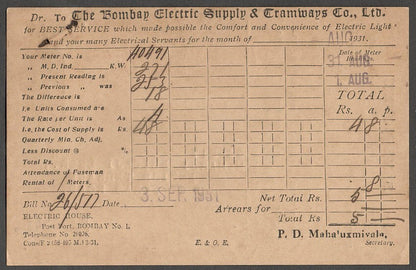 Dr. To The Bombay Electric Supply & Tramways Co., Ltd.
for BEST SERVICE which made possible the Comfort and Convenience of Electric Light
and your many Electrical Servants for the month of AUG 1931.
Your Meter No. is 40491 Date of Meter
„ M, D, Ind, K.W. 31 AUG.
„ Present Reading is 1 AUG.
„ Previous „ was
The Difference is 18 TOTAL
i.e Units Consumed are Rs. a. p.
The Rate per Unit is As 4
i.e, the Cost of Supply is Rs 4 8 4 8
Quarterly Min. Ch, Adj.
Less Discount @
Total Rs.
Attendance of Fuseman
Rental of Meters,
Bill No. Date 3. SEP. 1931 Net Total Rs 5 8
ELECTRIC HOUSE, Arrears for
Post Fort, BOMBAY No. 1. Total Rs 5
Telephone No. 26026. P. D. Mahaluxmivala,
E. & O. E. Secretary.